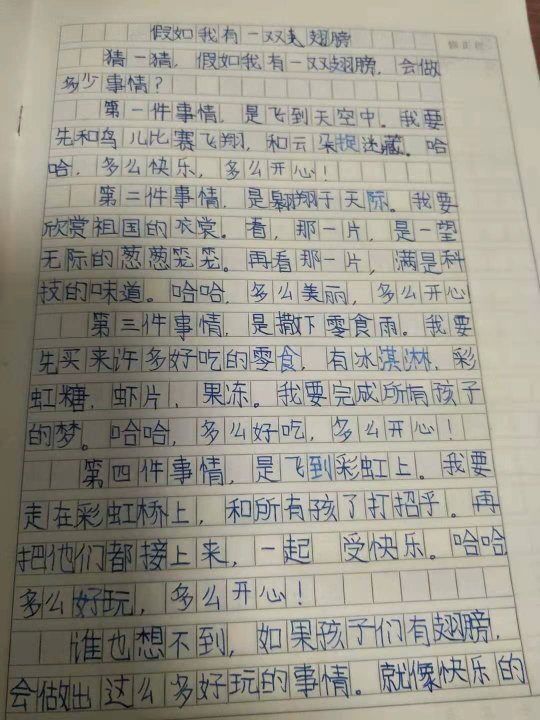 假如我有一双翅膀
猜一猜，假如我有一双翅膀，会做
多少事情？
第一件事情，是飞到天空中。我要
先和鸟儿比赛飞翔，和云朵捉迷藏。哈
哈，多么快乐，多么开心！
第二件事情，是翱翔于天际。我要
欣赏祖国的衣裳。看，那一片，是一望
无际的葱葱笼笼。再看那一片，满是科
技的味道。哈哈，多么美丽，多么开心
第三件事情，是撒下零食雨。我要
先买来许多好吃的零食，有冰淇淋，彩
虹糖，虾片，果冻。我要完成所有孩子
的梦。哈哈，多么好吃，多么开心！
第四件事情，是飞到彩虹上。我要
走在彩虹桥上，和所有孩了打招乎。再
把他们都接上来，一起 受快乐。哈哈
多么好玩，多么开心！
谁也想不到，如果孩子们有翅膀，
会做出这么多好玩的事情。就像快乐的